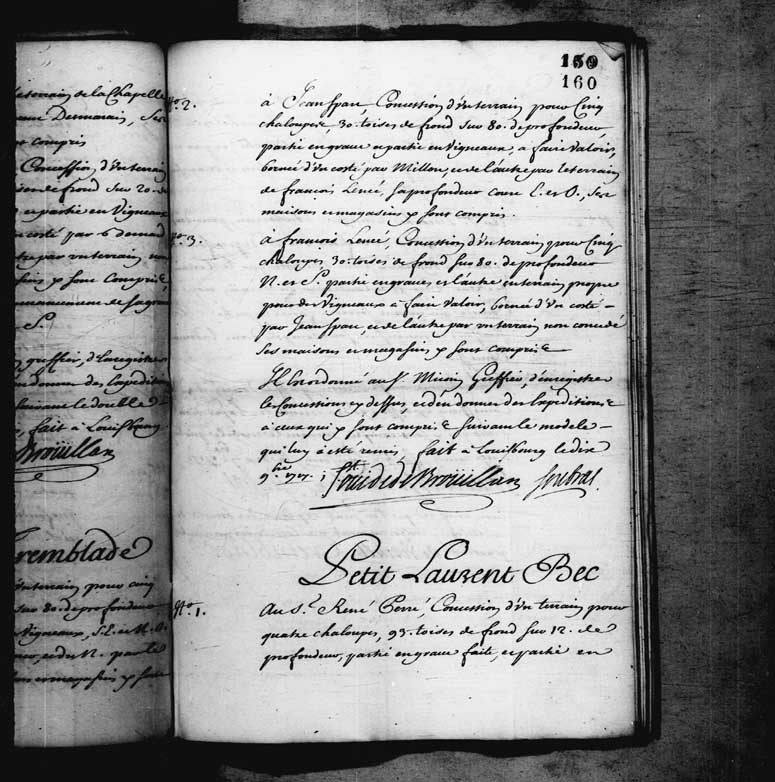 159
160
le terrain de la Chapelle
Desmarais, Ses
compris
Concession, d'un terrain
de frond sur 20. de
et partie en Vigneaux
costé par
par un terrain non
y sont Compris
S.
greffier, d'Enregistrer
donner des Expeditions
suivant le
fait à Louisbourg
Broüillan
Tremblade
un terrain pour cinq
sur 80. de profondeur
Vigneaux, S.E. et N.O.
et du N. par le
et magasin y sont
No. 2.
à Jean Span, Concession d'un terrain pour Cinq
chaloupes, 30. toises de frond sur 80. de profondeur,
partie en grave et partie en Vigneaux, a faire Valoir,
borné d'un costé par Millou, et de l'autre par le terrain
de françois Lencé, sa profondeur coure E. et O., Ses
maisons et magasins y sont compris.
No. 3.
à françois Lencé, Concession d'un terrain pour Cinq
chaloupes 30. toises de frond sur 80. de profondeur
N. et S. partie en graves et l'autre en terrain propre
pour des Vigneaux a faire Valoir, borné d'un costé
par Jean Span, et de l'autre par un terrain non concedé
Ses maisons et magasins y sont compris
Il est ordonné au Sr. Micoin Greffier, d'enregistrer
les Concessions cy dessus, et d'en donner des Expeditions
à ceux qui y sont compris suivant le modele
qui luy à esté remis, fait à Louisbourg le dix
9bre 1717. St Ovide de Broüillan Soubras.
Petit Laurent Bec
No. 1.
Au Sr. René Perré, Concession d'un terrain pour
quatre chaloupes, 93. toises de frond sur 12. de
profondeur, partie en grave faite, et partie en